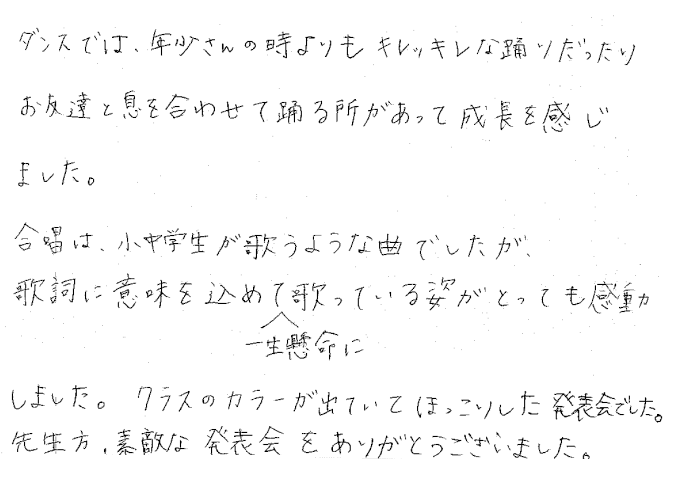 ダンスでは、年少さんの時よりもキレッキレな踊りだったり
お友達と息を合わせて踊る所があって成長を感じ
ました。
合唱は、小中学生が歌うような曲でしたが、
歌詞に意味を込めて歌っている姿がとっても感動
一生懸命に
しました。クラスのカラーが出ていてほっこりした発表会でした。
先生方、素敵な発表会をありがとうございました。